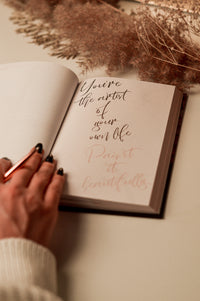 You're
the artist
of
your
own life
Paint
it
beautifully